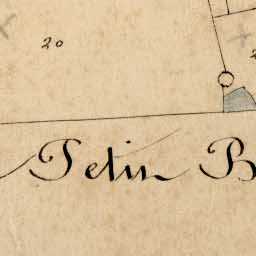 20
Petin B